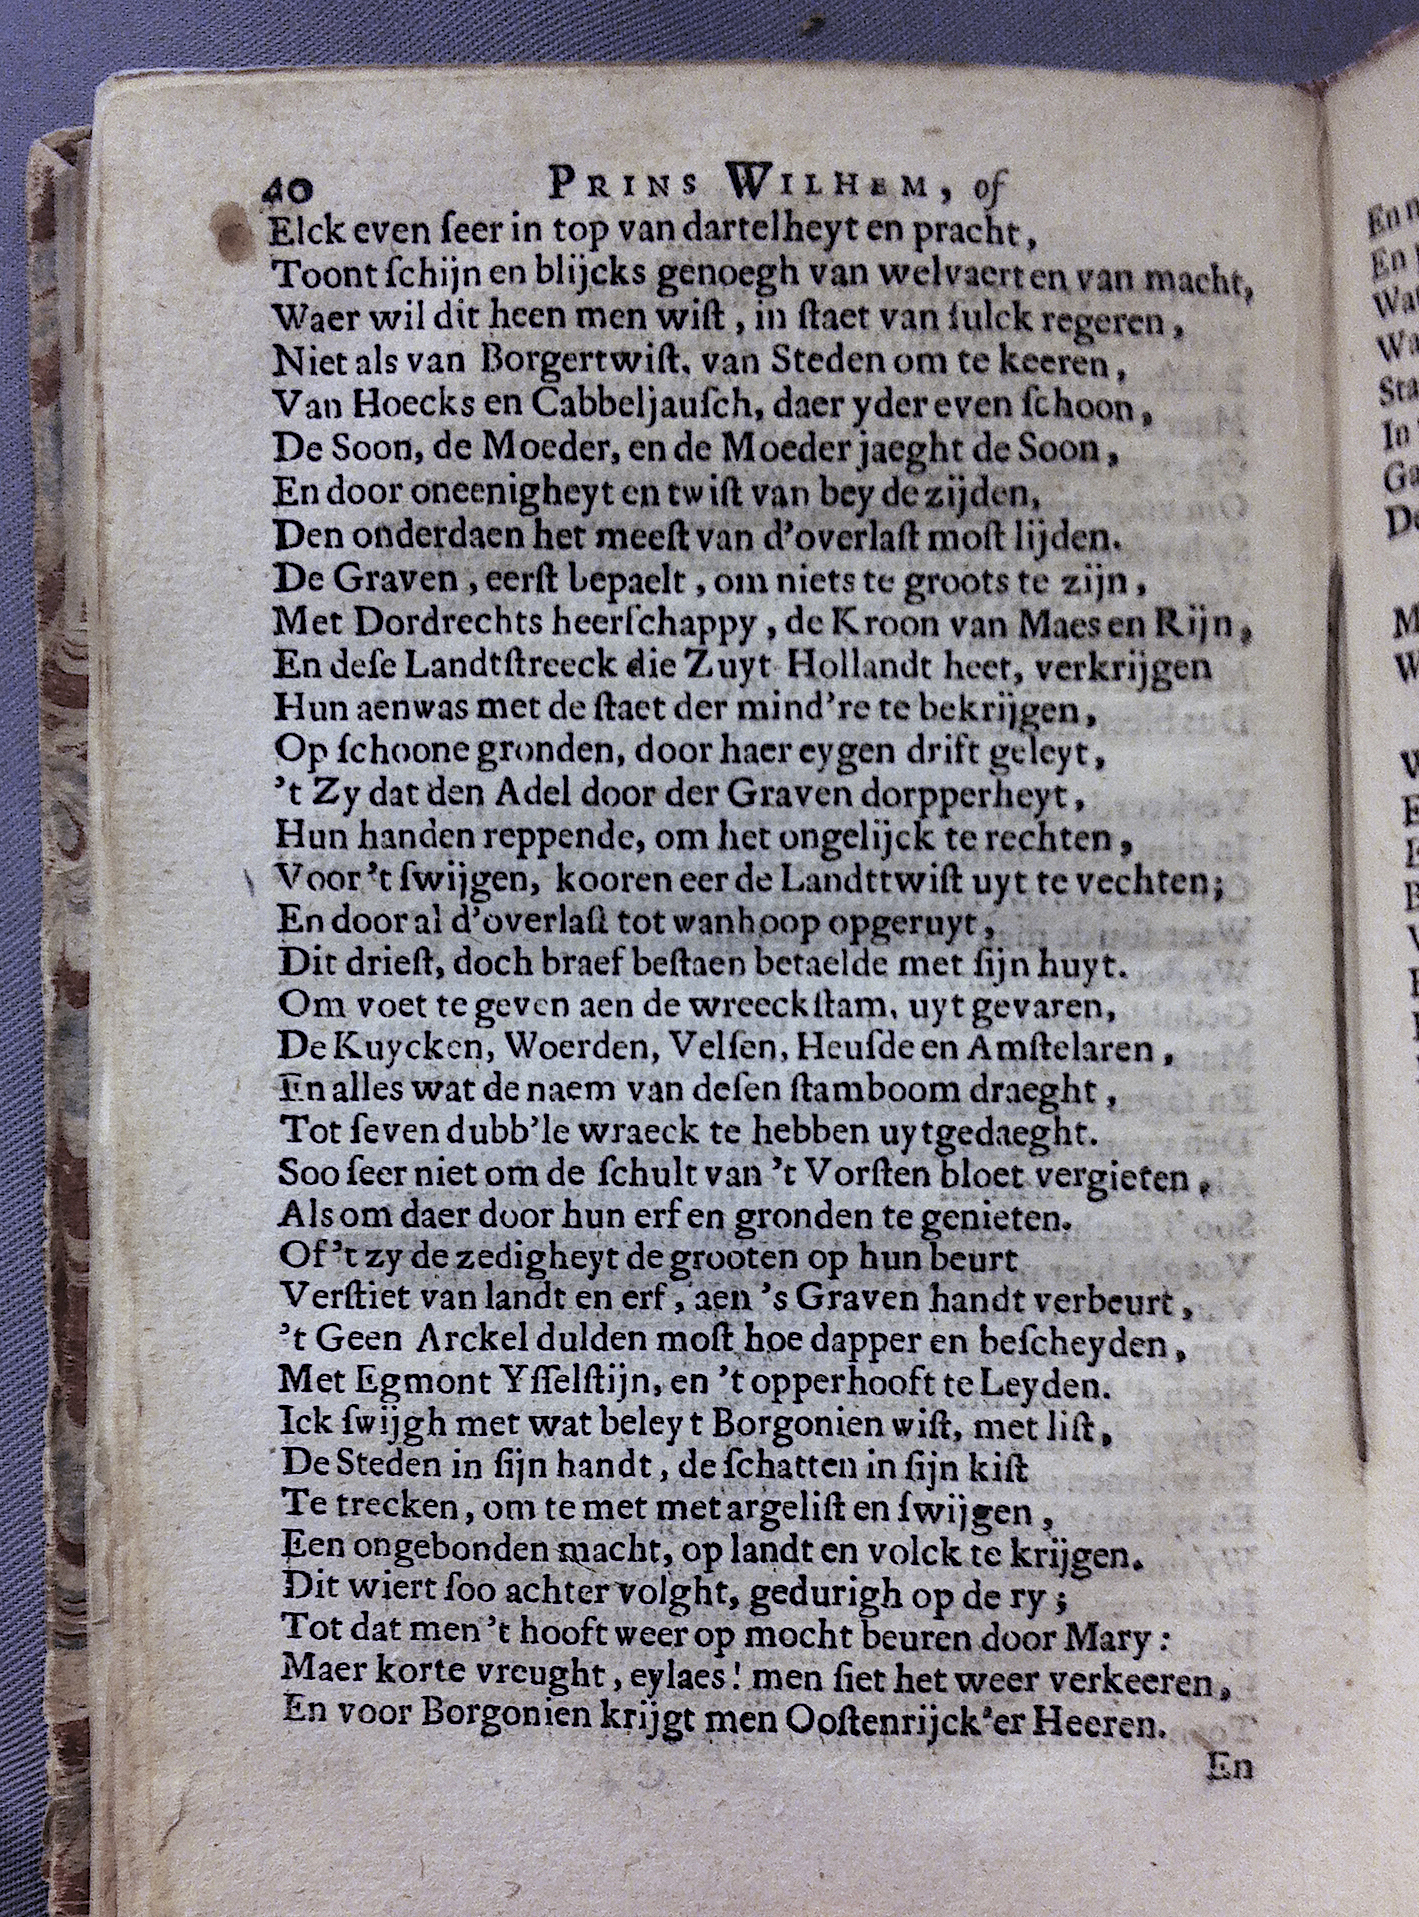 40 PRINS WILHEM, of
Elck even ſeer in top van dartelheyt en pracht,
Toont ſchijn en blijcks genoegh van welvaert en van macht,
Waer wil dit heen men wiſt, in ſtaet van ſulck regeren,
Niet als van Borgertwiſt, van Steden om te keeren,
Van Hoecks en Cabbeljauſch, daer yder even ſchoon,
De Soon, de Moeder, en de Moeder jaeght de Soon,
En door oneenigheyt en twiſt van beyde zijden,
Den onderdaen het meeſt van d'overlaſt moſt lijden.
De Graven, eerſt bepaelt, om niets te groots te zijn,
Met Dordrechts heerſchappy, de Kroon van Maes en Rijn,
En deſe Landtſtreeck die Zuyt Hollandt heet, verkrijgen
Hun aenwas met de ſtaet der mind're te bekrijgen,
Op ſchoone gronden, door haer eygen drift geleyt,
't Zy dat den Adel door der Graven dorpperheyt,
Hun handen reppende, om het ongelijck te rechten,
Voor 't ſwijgen, kooren eer de Landttwiſt uyt te vechten;
En door al d'overlaſt tot wanhoop opgeruyt,
Dit drieſt, doch braef beſtaen betaelde met ſijn huyt.
Om voet te geven aen de wreeckſtam, uyt gevaren,
De Kuycken, Woerden, Velſen, Heuſde en Amſtelaren,
En alles wat de naem van deſen ſtamboom draeght,
Tot ſeven dubb'le wraeck te hebben uytgedaeght.
Soo ſeer niet om de ſchult van 't Vorſten bloet vergieten,
Als om daer door hun erf en gronden te genieten.
Of 't zy de zedigheyt de grooten op hun beurt
Verſtiet van landt en erf, aen 's Graven handt verbeurt,
't Geen Arckel dulden moſt hoe dapper en beſcheyden,
Met Egmont Yſſelſtijn, en 't opperhooft te Leyden.
Ick ſwijgh met wat beleyt Borgonien wiſt, met liſt,
De Steden in ſijn handt, de ſchatten in ſijn kiſt
Te trecken, om te met met argeliſt en ſwijgen,
Een ongebonden macht, op landt en volck te krijgen.
Dit wiert ſoo achter volght, gedurigh op de ry;
Tot dat men 't hooft weer op mocht beuren door Mary:
Maer korte vreught, eylaes! men ſiet het weer verkeeren,
En voor Borgonien krijgt men Ooſtenrijck'er Heeren.
En